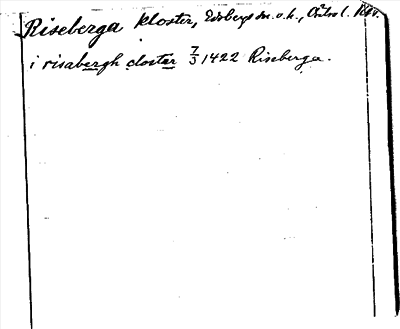 Riseberga kloster, Edsbergs sn. o. h., Örebro l. Nke.
i risabergh closter 7/3 1422 Riseberga.